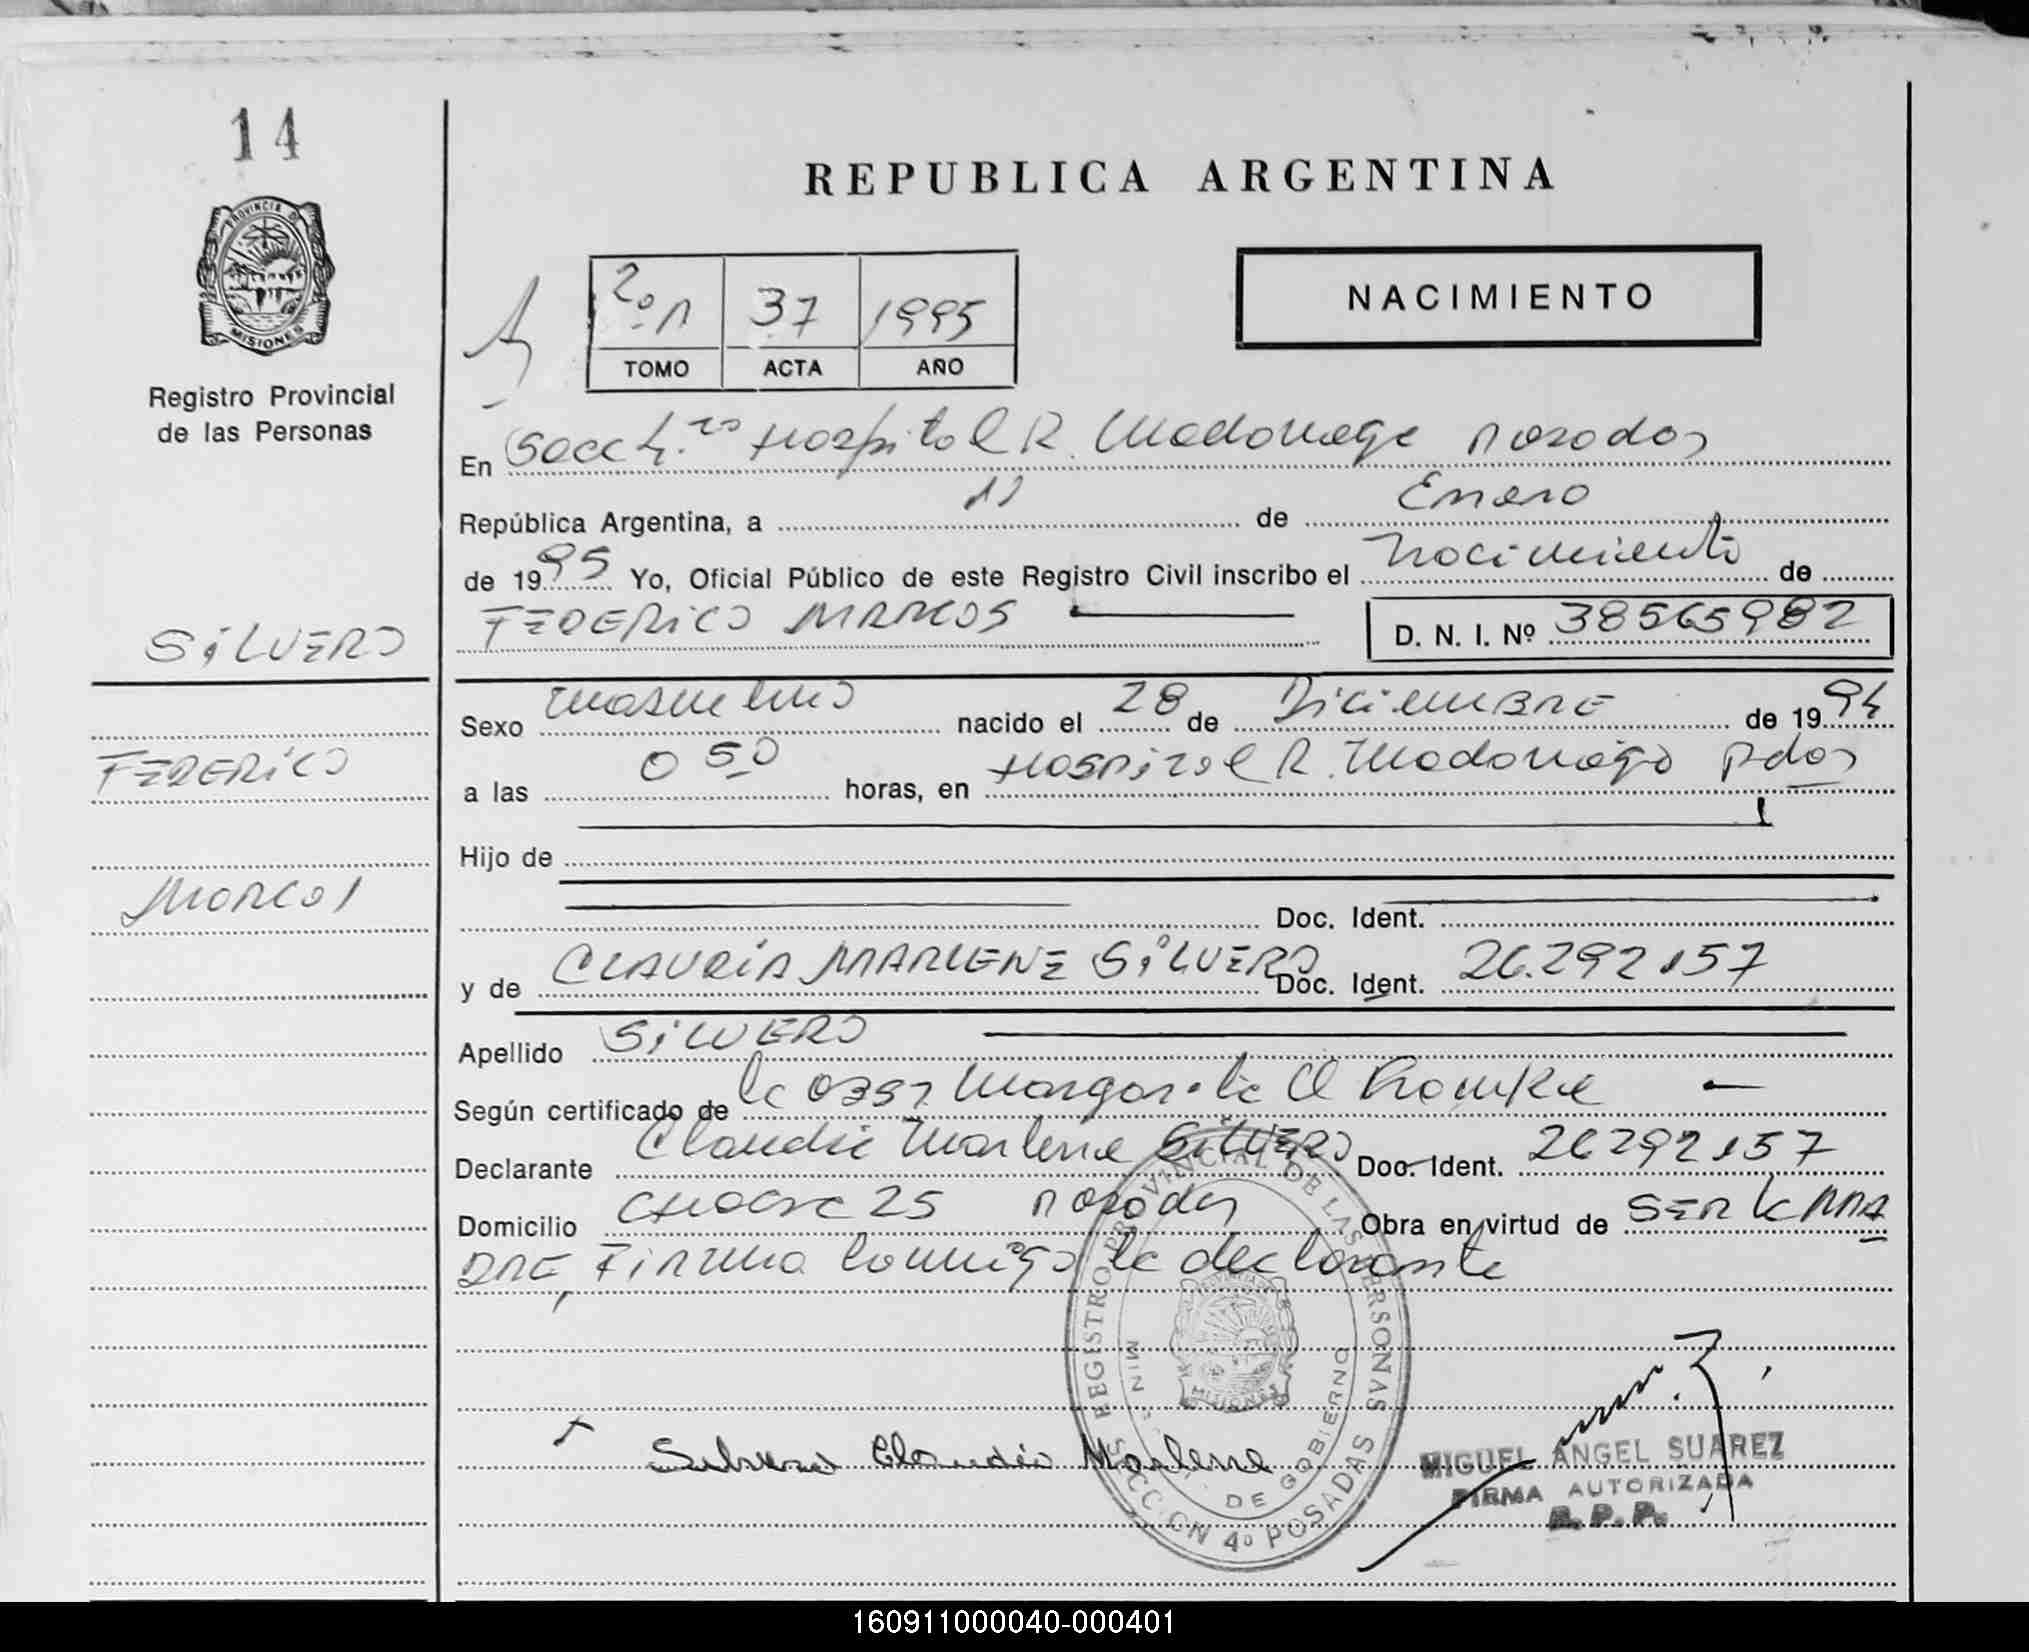 14
REPUBLICA ARGENTINA
PROVINCIA DE MISIONES
Registro Provincial
de las Personas
2º 37 1995
TOMO ACTA AÑO
NACIMIENTO
En Secc 4.ta Hospital R. Madariaga Posadas
República Argentina, a 11 de Enero
de 1995 Yo, Oficial Público de este Registro Civil inscribo el nacimiento de
FEDERICO MARCOS D. N. I. Nº 38565982
SILVERO
FEDERICO
MARCOS
Sexo masculino nacido el 28 de Diciembre de 1994
a las 0 50 horas, en Hospital R. Madariaga Pdas
Hijo de
Doc. Ident.
y de CLAUDIA MARLENE SILVERO Doc. Ident. 26.292.157
Apellido SILVERO
Según certificado de la Margarita
Declarante Claudia Marlene SILVERO Doc. Ident. 26292157
Domicilio 25 Posadas Obra en virtud de SER LA MA
DRE, Firma conmigo la declarante
Silvero Claudia Marlene
REGISTRO PROVINCIAL DE LAS PERSONAS
SECCION 4º POSADAS
DE GOBIERNO
MISIONES
MIGUEL ANGEL SUAREZ
FIRMA AUTORIZADA
R. P. P.
160911000040-000401